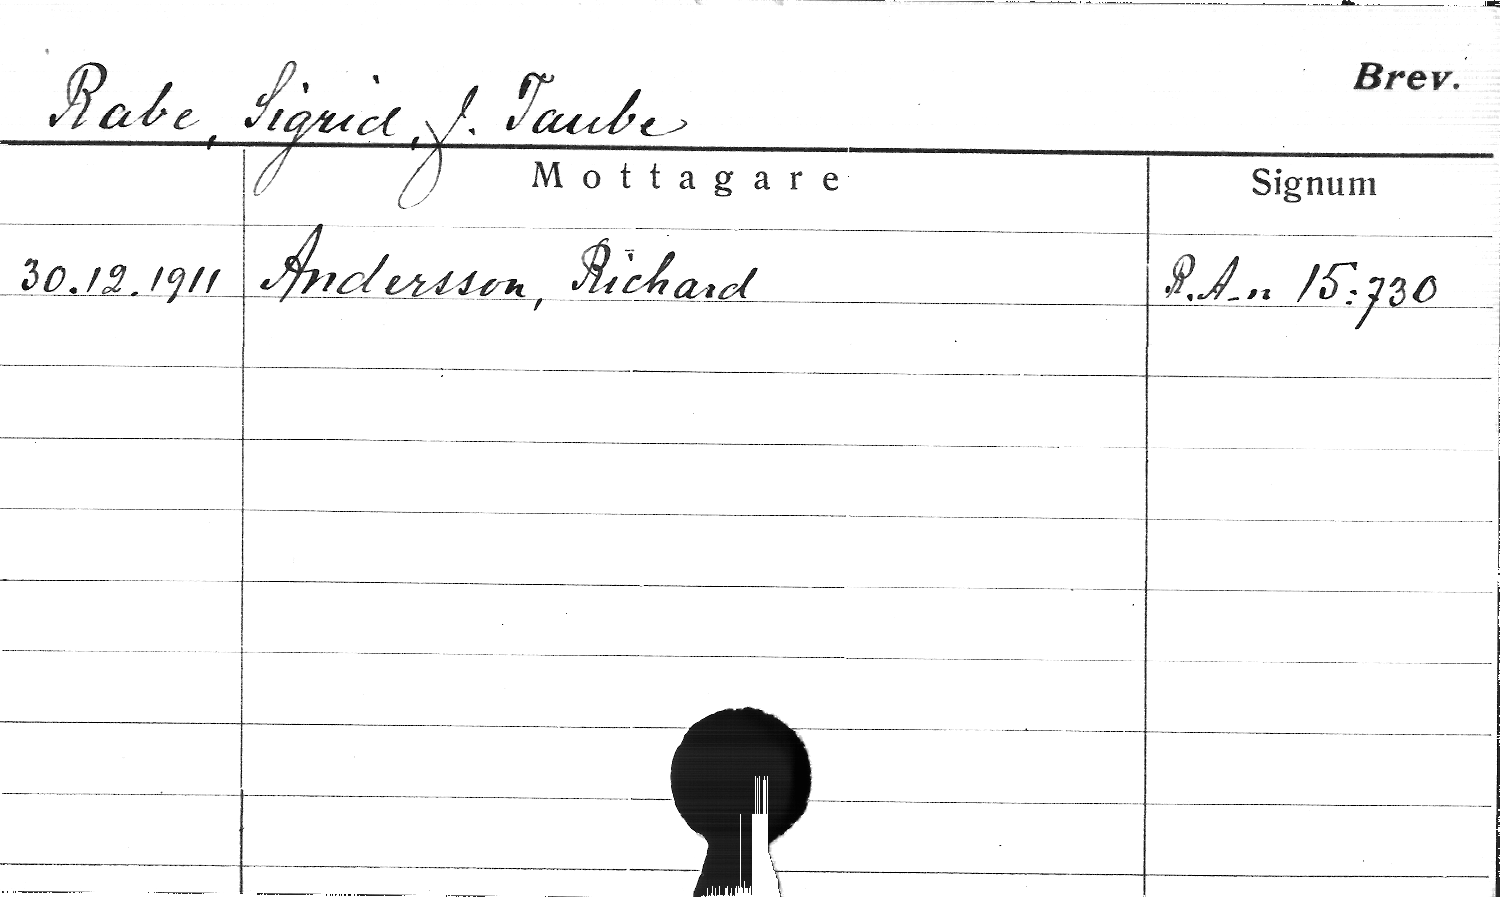 Rabe, Sigrid, f. Taube
Brev.
Mottagare
Signum
30.12.1911 Andersson, Richard R.A-n 15:730